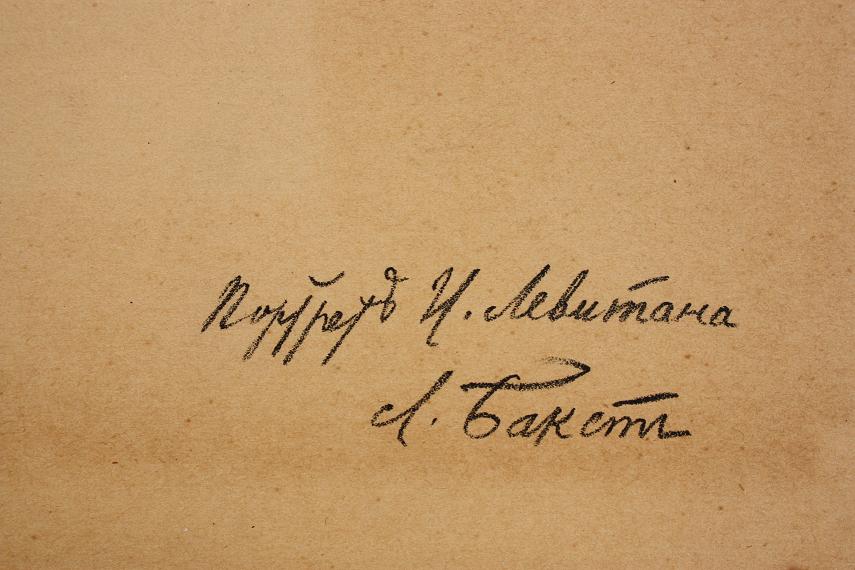 Портретъ И. Левитана
Л. Бакстъ